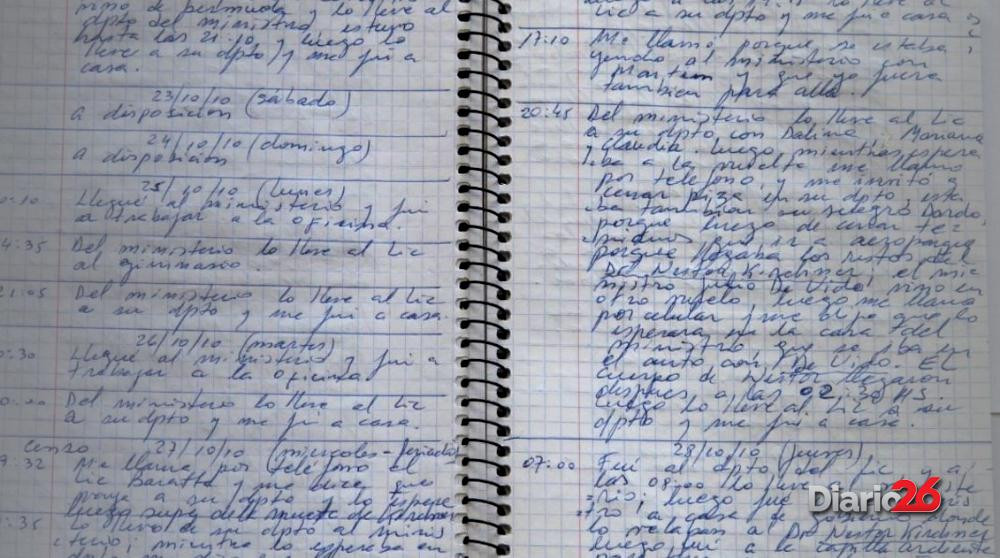 lo lleve al
dpto del ministro, estuvo
hasta las 21:10 y luego lo
lleve a su dpto y me fui a
casa.
23/10/10 (sábado)
a disposición
24/10/10 (domingo)
a disposición
25/10/10 (lunes)
Llegué al ministerio y fui
a trabajar a la oficina.
Del ministerio lo lleve al Lic
al gimnasio.
Del ministerio lo lleve al Lic
a su dpto y me fui a casa.
26/10/10 (martes)
Llegué al ministerio y fui a
trabajar a la oficina
Del ministerio lo lleve al Lic
a su dpto y me fui a casa.
censo 27/10/10 (miercoles - feriado)
Me llama por teléfono el
Lic Baratta y me dice que
a su dpto y lo espere
luego supe de la muerte de
lo lleve de su dpto al minis
terio; mientras lo esperaba en
Lic a su dpto y me fui a casa
17:10 Me llamo, porque se estaba
yendo al ministerio con
Martin y que yo fuera
tambien para alla.
20:45 Del ministerio lo lleve al Lic
a su dpto con Dalina, Mariana
y Claudia. Luego, mientras espera
ba a la me llamo
por telefono, y me invitó a
cenar pizza en su dpto, esta
ba tambien su suegro Dardo,
porque luego de cenar te
que ir a aeroparque
porque llegaban los restos del
Dr. Nestor Kirchner; el mi
nistro Julio De Vido, vino en
otro vuelo, luego me llama
por celular y me dijo que lo
esperara en la casa del
ministro que se iba en
el auto con De Vido. El
cuerpo de Nestor llegaron
despues a las 02:30 HS.
Luego lo lleve al Lic a su
dpto y me fui a casa.
28/10/10 (jueves)
07:00 Fui al dpto del Lic y a
las 08:00 lo lleve a
luego fue
a casa de gobierno donde
lo velaban a Dr. Nestor Kirchner
luego fui a la
Diario26